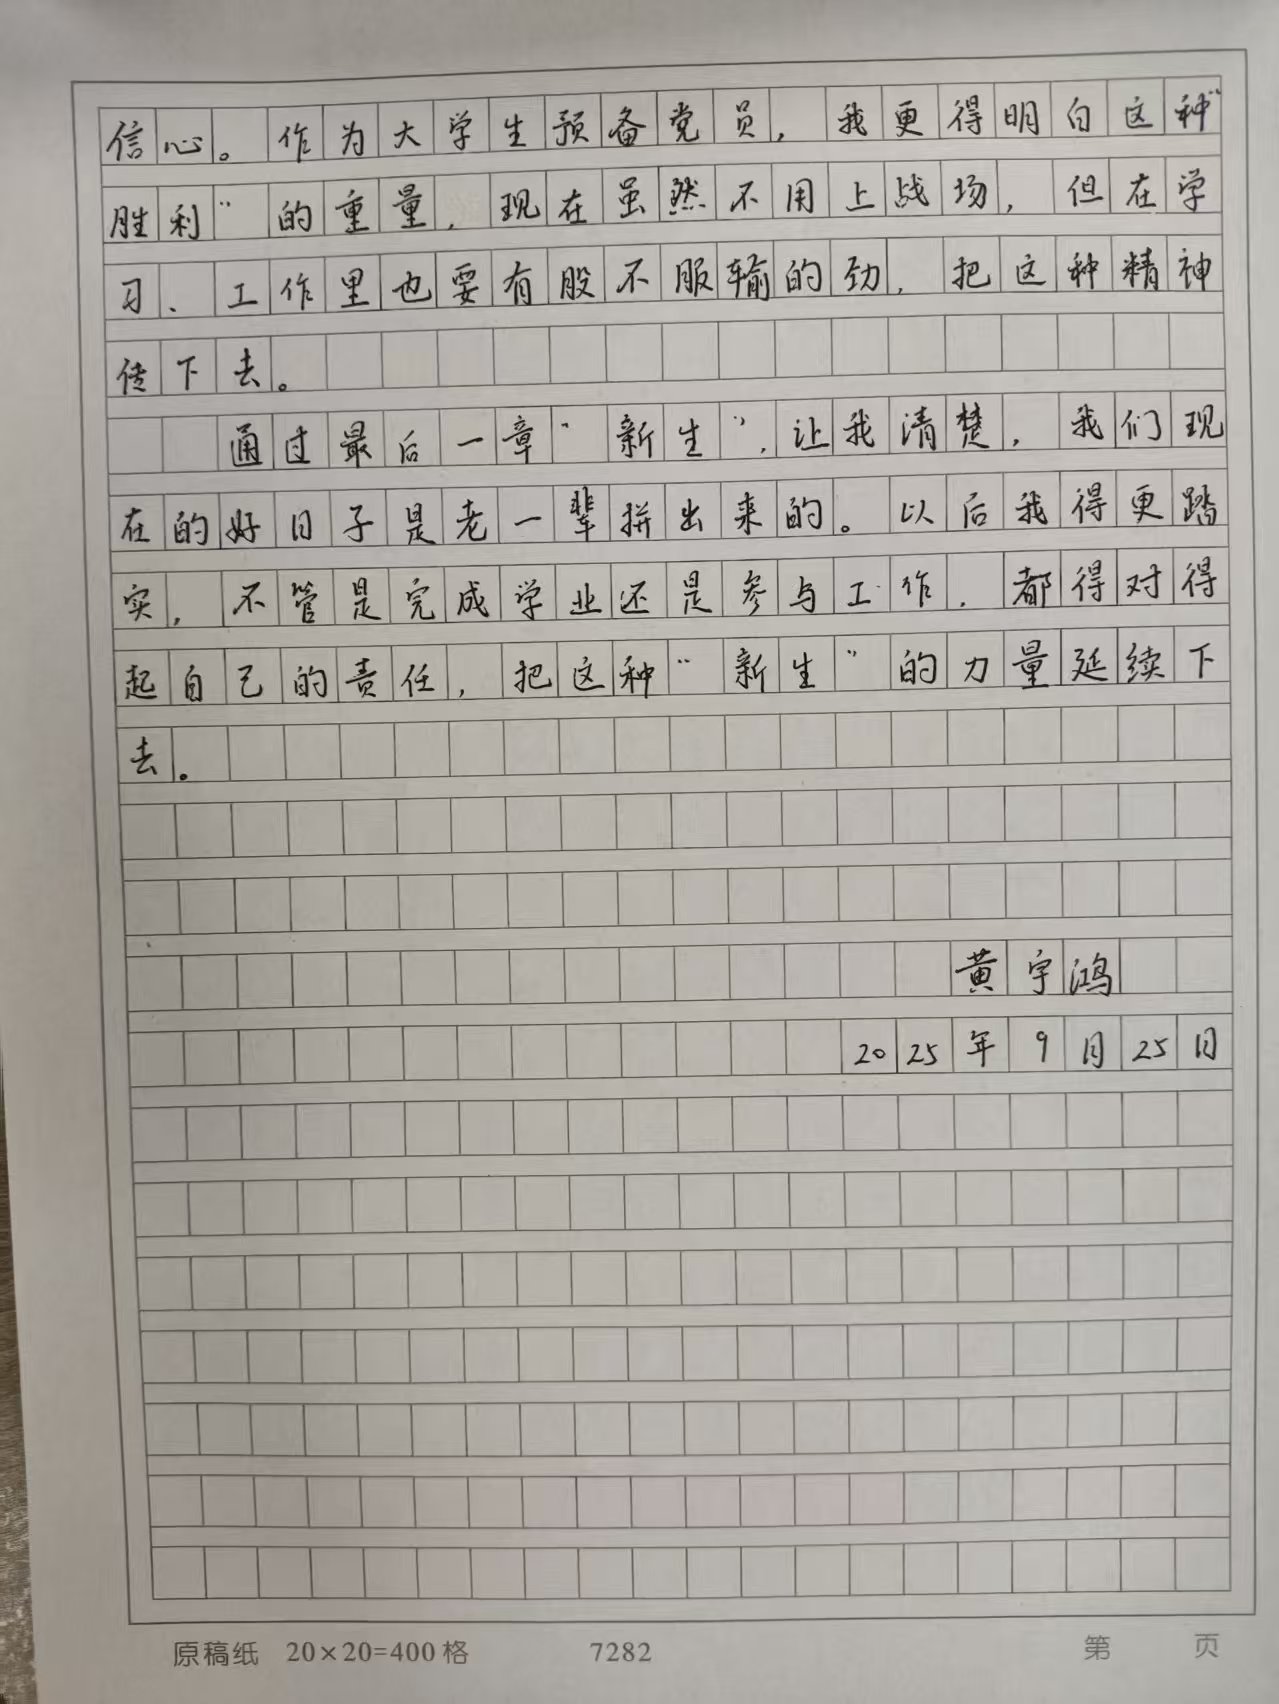 信心。作为大学生预备党员，我更得明白这种“
胜利”的重量，现在虽然不用上战场，但在学
习、工作里也要有股不服输的劲，把这种精神
传下去。
通过最后一章“新生”，让我清楚，我们现
在的好日子是老一辈拼出来的。以后我得更踏
实，不管是完成学业还是参与工作，都得对得
起自己的责任，把这种“新生”的力量延续下
去。
黄宇鸿
2025年9月25日
原稿纸 20×20=400格 7282 第 页